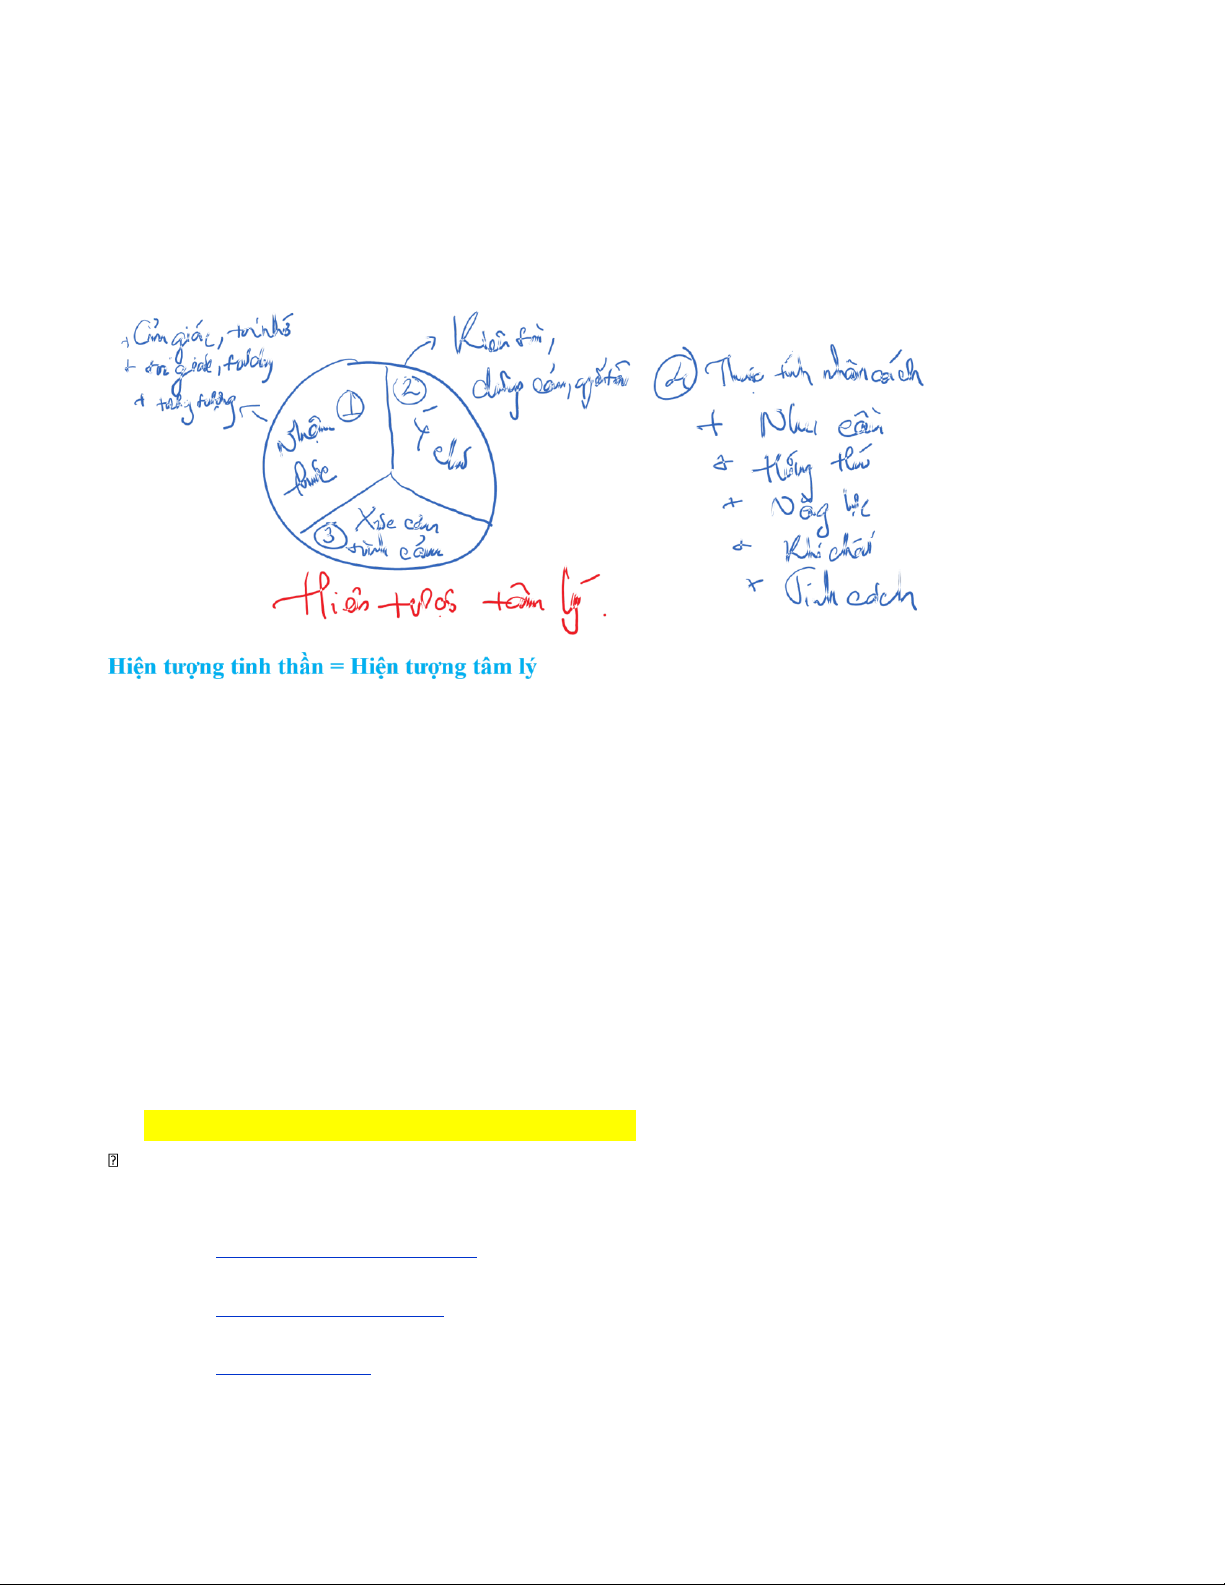 + Cảm giác, trí nhớ
+ tri giác, tưởng
+ tưởng tượng
Kiên trì,
dũng cảm, quyết tâm
① Nhận
thức
② Ý
chí
③ Xúc cảm
tình cảm
Hiện tượng tâm lý.
④ Thuộc tính nhân cách
+ Nhu cầu
+ Hứng thú
+ Năng lực
+ Khí chất
+ Tính cách
Hiện tượng tinh thần = Hiện tượng tâm lý